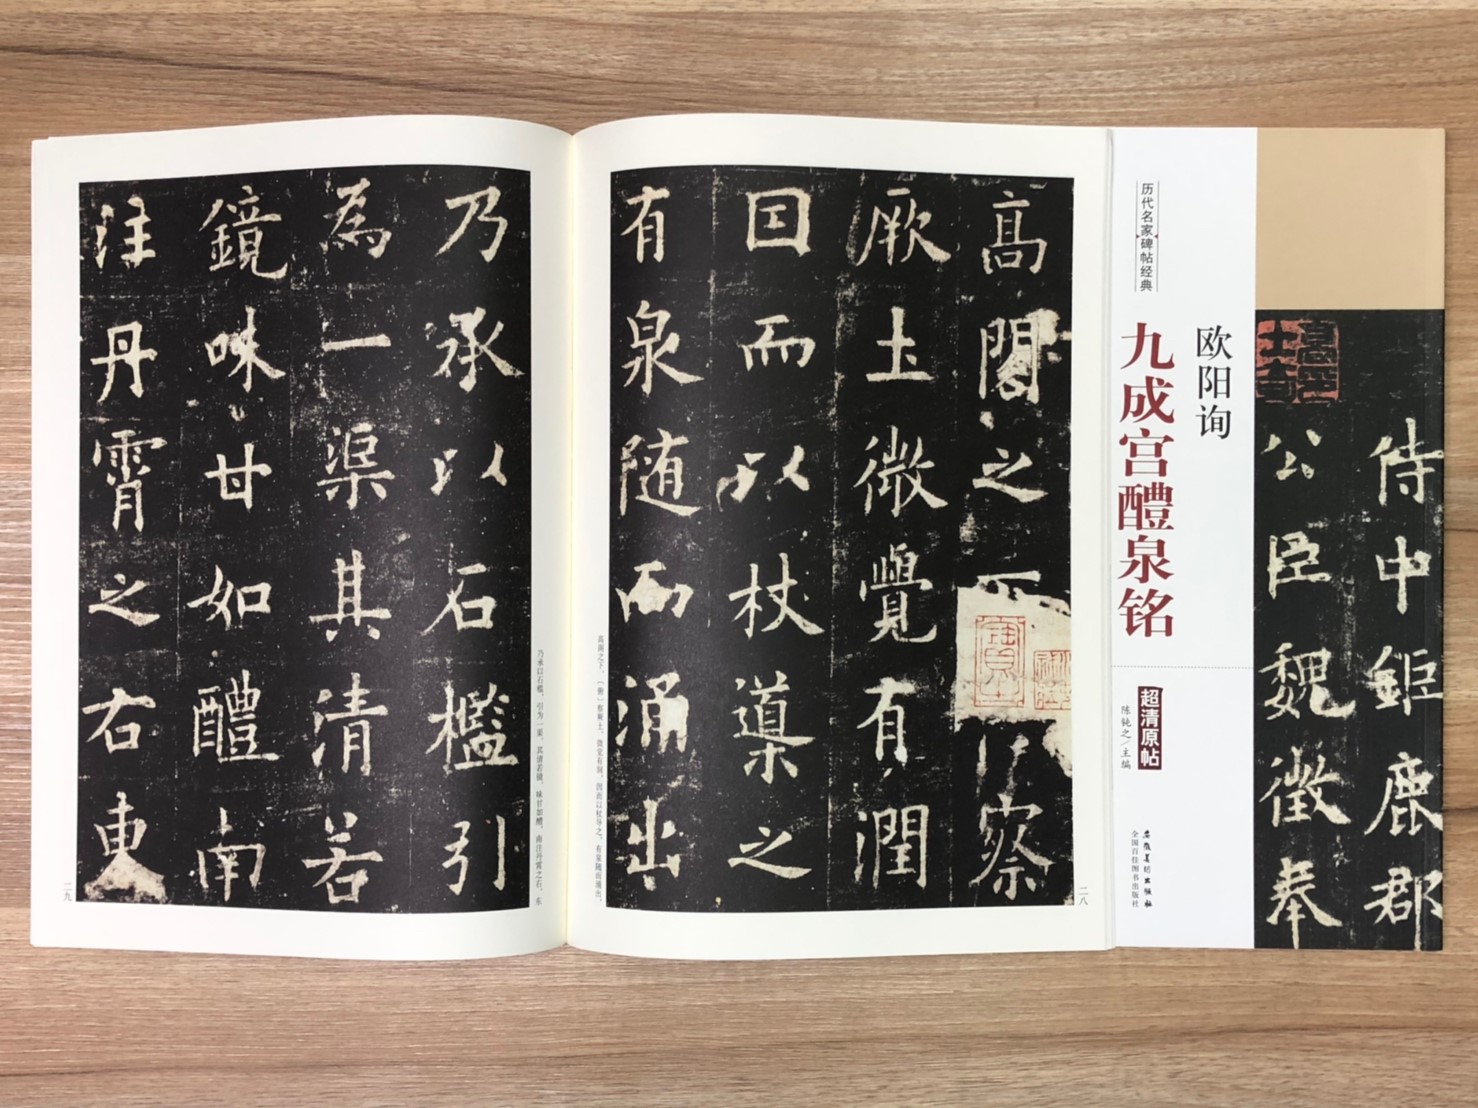 侍中鉅鹿郡
公臣魏徵奉
欧阳询
历代名家碑帖经典
九成宫醴泉铭
超清原帖
陈钝之/主编
安徽美術出版社
全国百佳图书出版社
二八
高閣之下察
厥土微覺有潤
因而以杖導之
有泉随而涌出
高阁之下，〔俯〕察厥土，微觉有润，因而以杖导之，有泉随而涌出，
乃承以石槛，引为一渠，其清若镜，味甘如醴，南注丹霄之右，东
乃承以石檻引
為一渠其清若
鏡味甘如醴南
注丹霄之右東
二九